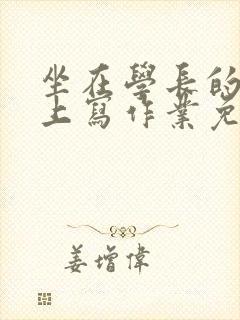 坐在學長的
上寫作業免
姜增偉